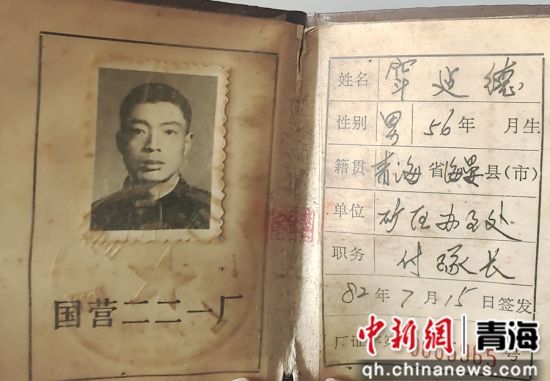 国营二二一厂
姓名
性别 男 56年 月生
籍贯 青海省海晏县(市)
单位 矿区办事处
职务 付队长
82年7月15日签发
厂证字
号
中新网 青海
qh.chinanews.com